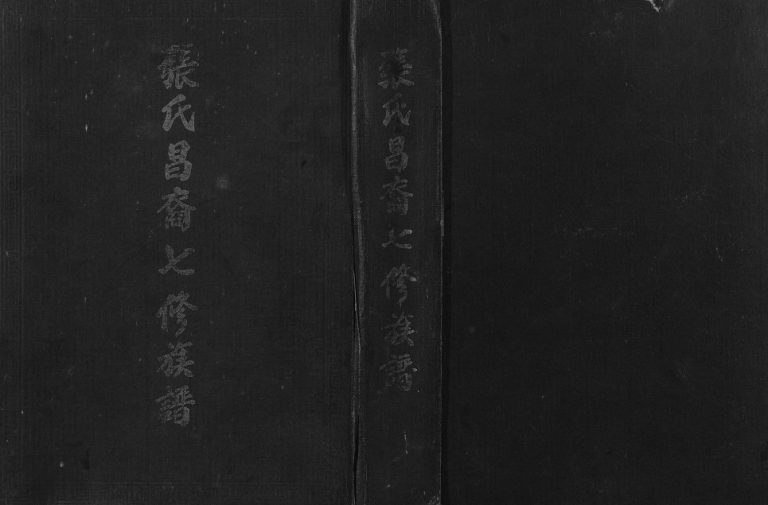 張氏昌裔七修族譜
張氏昌裔七修族譜